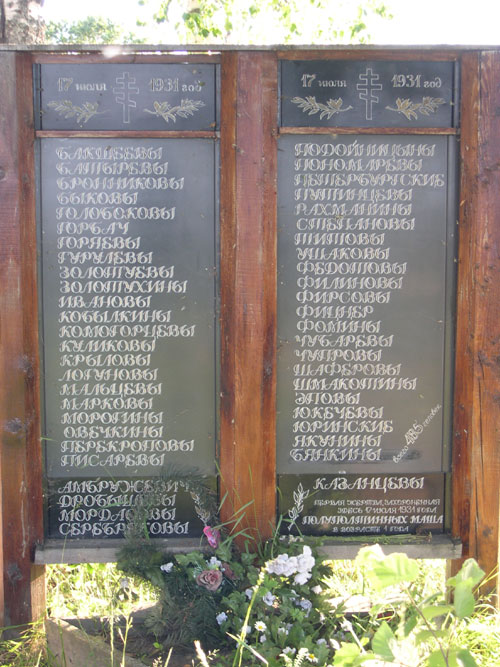 17 июля 1931 год
БАКШЕЕВЫ
БАТЫРЕВЫ
БРОННИКОВЫ
БЫКОВЫ
ГОЛОБОКОВЫ
ГОРБАЧ
ГОРЯЕВЫ
ГУРУЛЕВЫ
ЗОЛОТУЕВЫ
ЗОЛОТУХИНЫ
ИВАНОВЫ
КОБЫЛКИНЫ
КОМОГОРЦЕВЫ
КУЛИКОВЫ
КРЫЛОВЫ
ЛОГУНОВЫ
МАЛЬЦЕВЫ
МАРКОВЫ
МОРОГИНЫ
ОВЕЧКИНЫ
ПЕРЕКРОПОВЫ
ПИСАРЕВЫ
АМБРУЖЕВИЧ
ДРОБЫШЕВЫ
МОРДАСОВЫ
СЕРЕБРЯКОВЫ
17 июля 1931 год
ПОДОЙНИЦЫНЫ
ПОНОМАРЕВЫ
ПЕТЕРБУРГСКИЕ
ПУТИНЦЕВЫ
РАХМАНИНЫ
СТЕПАНОВЫ
ТИТОВЫ
УШАКОВЫ
ФЕДОТОВЫ
ФИЛИНОВЫ
ФИРСОВЫ
ФИЦНЕР
ФОМИНЫ
ЧУБАРЕВЫ
ЧУПРОВЫ
ШАФЕРОВЫ
ШМАКОТИНЫ
ЭПОВЫ
ЮКЕЧЕВЫ
ЮРИНСКИЕ
ЯКУНИНЫ
БЯНКИНЫ
всего 485 человек
КАЗАНЦЕВЫ
ПЕРВАЯ ЖЕРТВА, ЗАХОРОНЕННАЯ
ЗДЕСЬ 17 ИЮЛЯ 1931 ГОДА
ПОЛУПОЛТИННЫХ МАША
В ВОЗРАСТЕ 1 ГОДА